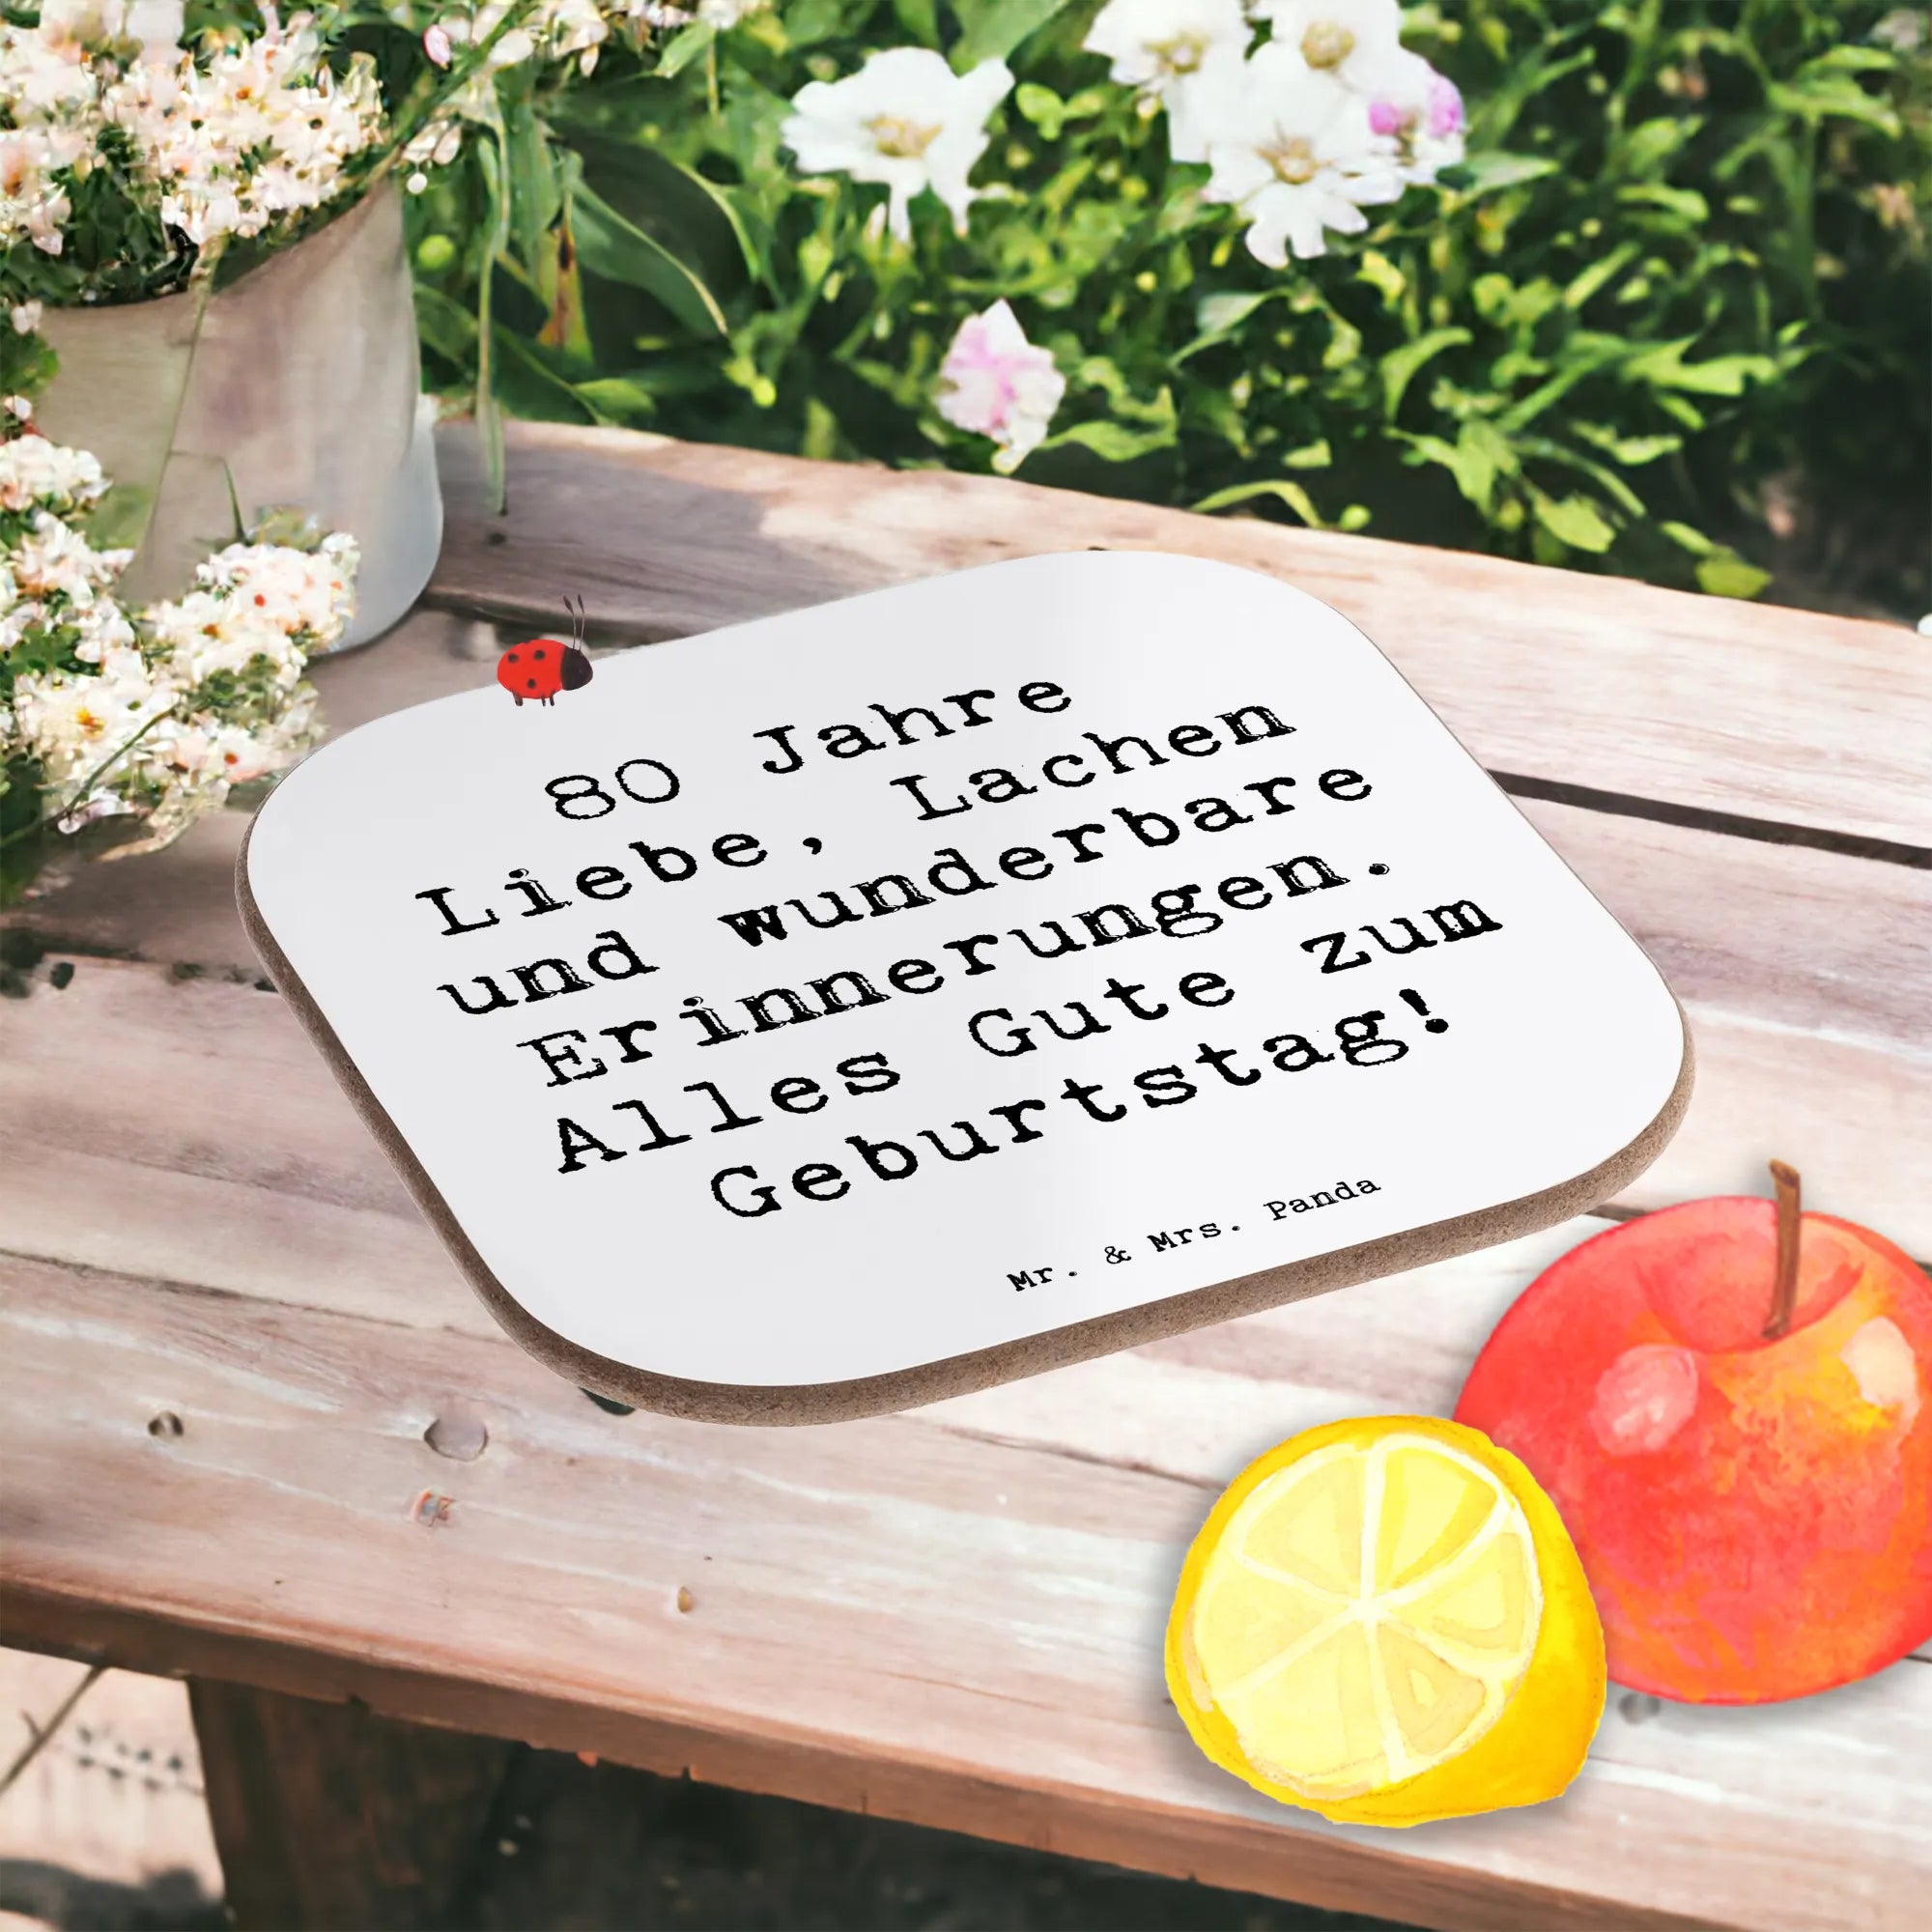 80 Jahre
Liebe, Lachen
und wunderbare
Erinnerungen.
Alles Gute zum
Geburtstag!
Mr. & Mrs. Panda